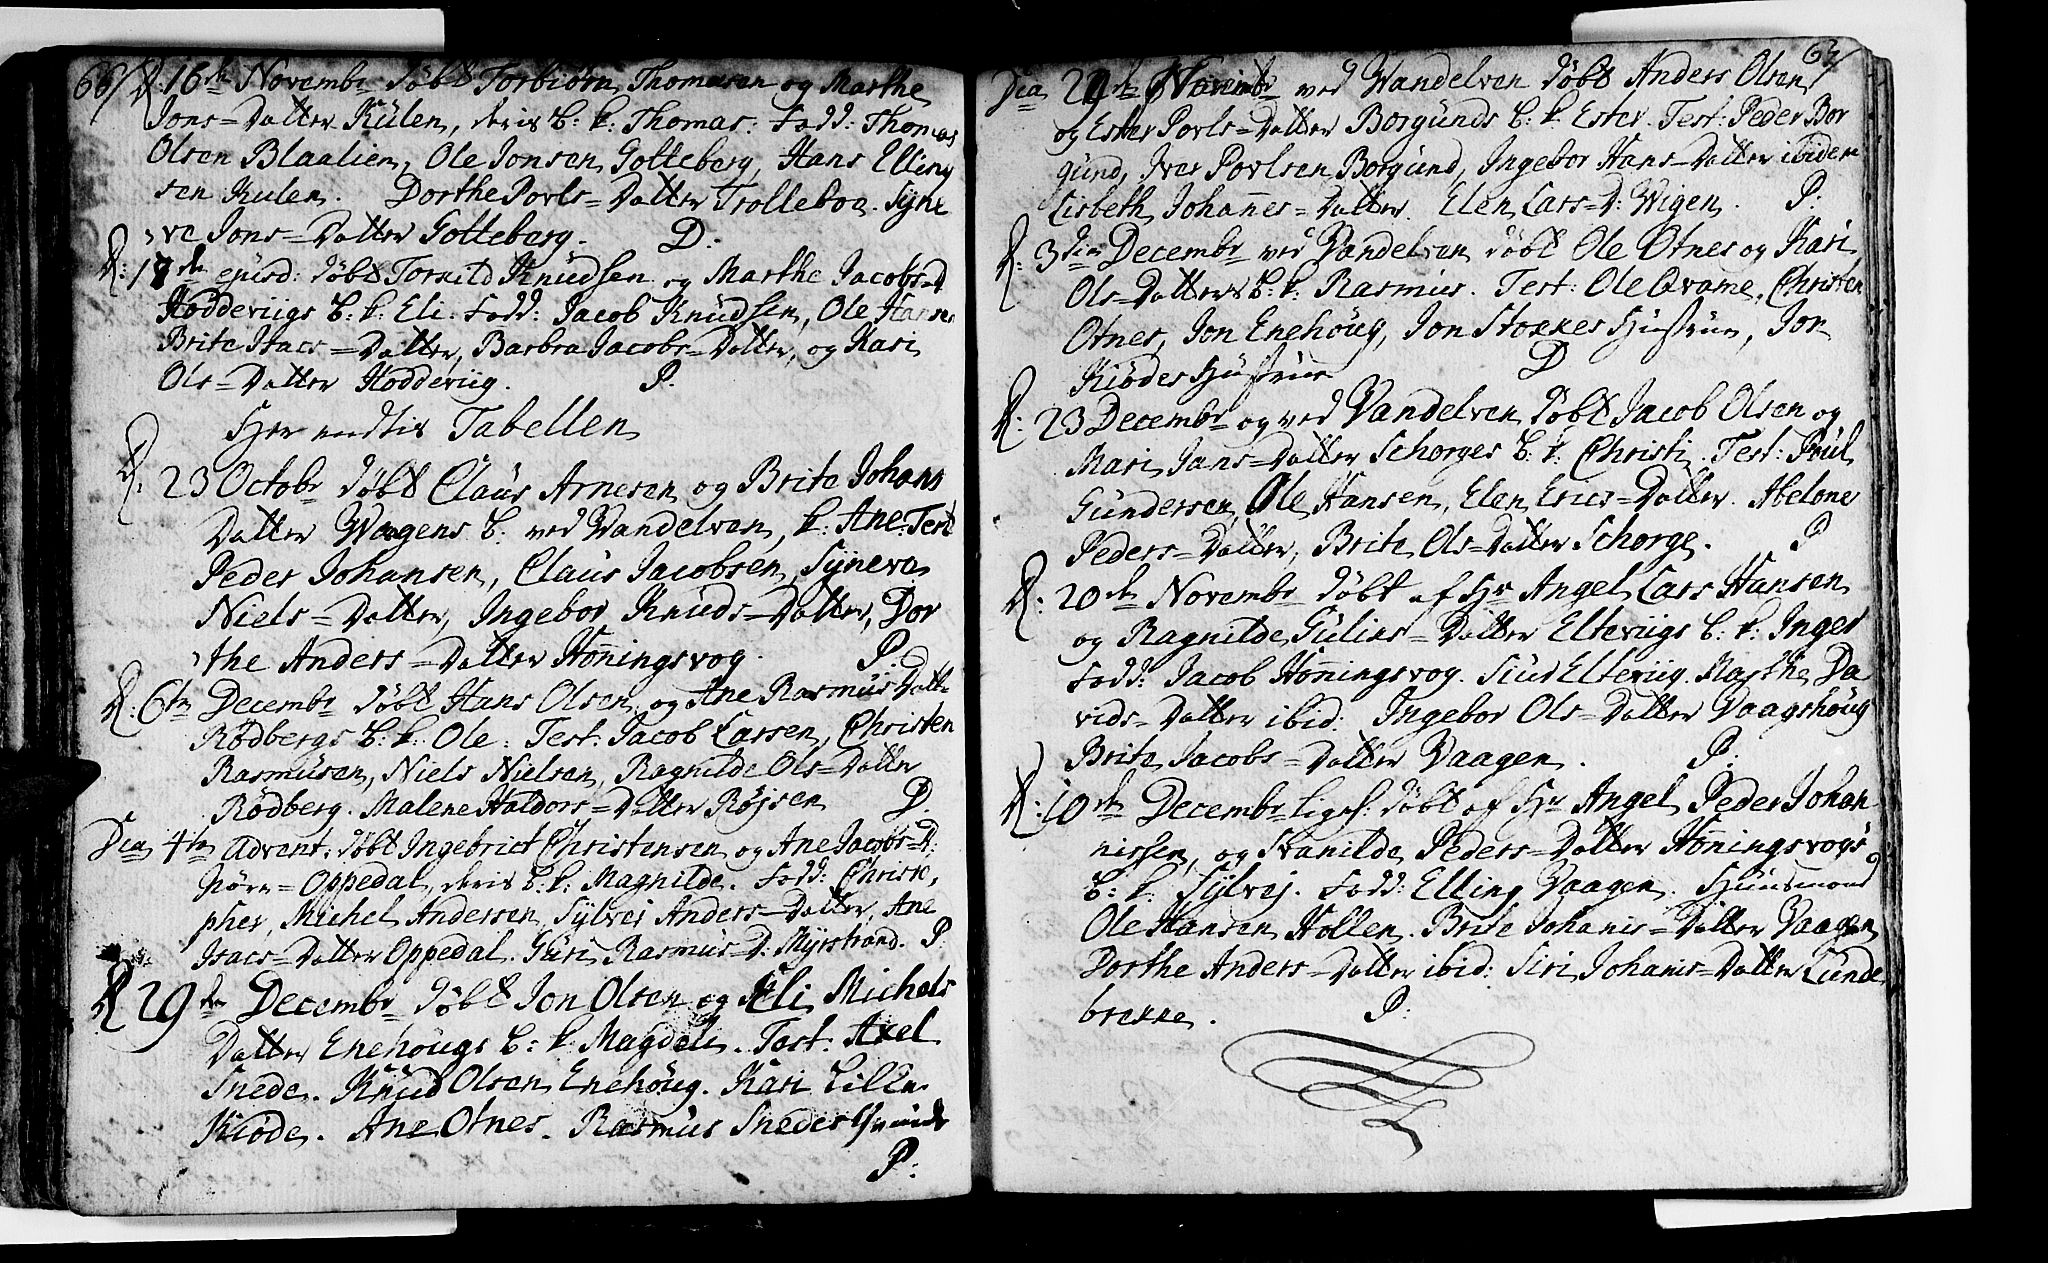 66/ D. 16de Novembr døbt Torbiørn Thomæsen og Marthe
Jons=Datter Külen, deris B: k: Thomas: Fadd: Thomas
Olsen Blaalien, Ole Jonsen Gotteberg, Hans Elling
sen Kulen. Dorthe Povls=Datter Trolleboe. Syne
ve Jons=Datter Gotteberg. D.
D: 17de ejusd: døbt Torkild Knudsen og Marthe Jacobs=D
Hodderiigs B: k: Eli: Fadd: Jacob Knudsen, Ole Hanse
Brite Isacs=Datter, Barbra Jacobs=Datter, og Kari
Ols=Datter Hodderiig. P.
Her endtis Tabellen
D. 23 Octobr døbt Claus Arnesen og Brite Johans
Datter Waagens B. ved Vandelven, k: Ane: Test
Peder Johansen, Claus Jacobsen, Syneve
Niels=Datter, Ingebor Knuds=Datter, Dor
the Anders=Datter Hoñingsvog. P.
D: 6te Decembr døbt Hans Olsen og Ane Rasmus Datte
Rødbergs B: k: Ole. Test: Jacob Larsen, Christen
Rasmusen, Niels Nielsen, Ragnilde Ols=Datter
Rødberg. Malene Haldors=Datter Røjsen D.
Dca 4ta Advent: døbt Ingebrict Christensen og Ane Jacobs=D:
Oppedal, deris B: k: Magnilde. Fadd: Christo,
pher, Michel Andersen, Sylvej Anders=Datter, Ane
Isacs=Datter Oppedal. Guri Rasmus=D. Myrstrand. P.
D 29de Decembr døbt Jon Olsen og Eli Michels
Datter Enehougs B: k: Magdeli. Test: Axel
Snede. Knud Olsen Enehoug. Kari Lille
Kiøde. Ane Otnes. Rasmus Snedes
P:
63/
Dca Novembr ved Wandelven døbt Anders Olsen
og Ester Povls=Datter Borgunds B: k: Ester. Test: Peder Bor
gund, Iver Povlsen Borgund, Ingebor Hans=Datter ibidem
Lisbeth Johañes=Datter. Elen Lars=D: Wigen. P:
D: 3die Decembr ved Vandelven døbt Ole Otnes og Kari
Ols=Datters B: k: Rasmus. Test: Ole Qvame, Christen
Otnes, Jon Enehoug, Jon Stokkes Hustrue, Jor
Kiødes Hustrue D
D. 23 Decembr og ved Vandelven døbt Jacob Olsen og
Mari Jans=Datter Schorges B: k: Christi. Test: Poul
Gundersen, Ole Hansen, Elen Erics=Datter. Abelone
Peders=Datter, Brite Ols=Datter Schorge. P
D: 20de Novembr døbt af Hr Angel Lars Hansen
og Ragnilde Gulies=Datter Elteviigs B: k: Inger
Fadd: Jacob Hoñingsvog. Siur Elteviig. Marthe Da
vids=Datter ibid: Ingebor Ols=Datter Vaagshoug
Brite Jacobs=Datter Vaagen. P.
D: 10de Decembr ligesl: døbt af Hr Angel Peder Johan
nissen, og Svanilde Peders=Datter Hoñingsvogs
B: k: Sylvej. Fadd: Elling Vaagen. Huusmand
Ole Hansen Hollen. Brite Johanis=Datter Vaagen
Dorthe Anders=Datter ibid: Siri Johanis=Datter Lunde
brekke. P: